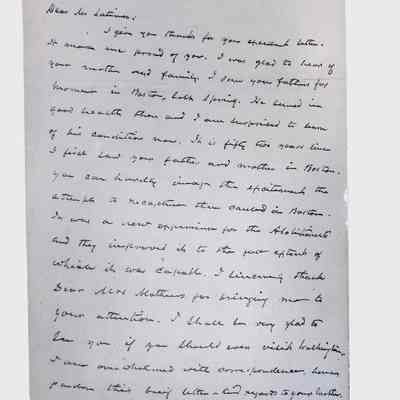 Dear Mr Latimer.
I give you thanks for your excellent letter.
It makes me proud of you. I was glad to hear of
your mother and family. I saw your father for a
moment in Boston, last Spring. He seemed in
good health then and I am surprised to learn
of his condition now. It is fifty two years since
I first saw your father and mother in Boston.
You can hardly imagine the excitement the
attempts to recapture them caused in Boston.
It was a new experience for the Abolitionists
and they improved it to the full extent of
which it was capable. I sincerely thank
Dear Mrs Mathews for bringing me to
your attention. I shall be very glad to
see you if you should ever visit Washington,
I am overwhelmed with correspondence, hence
pardon this brief letter - kind regards to your brother.